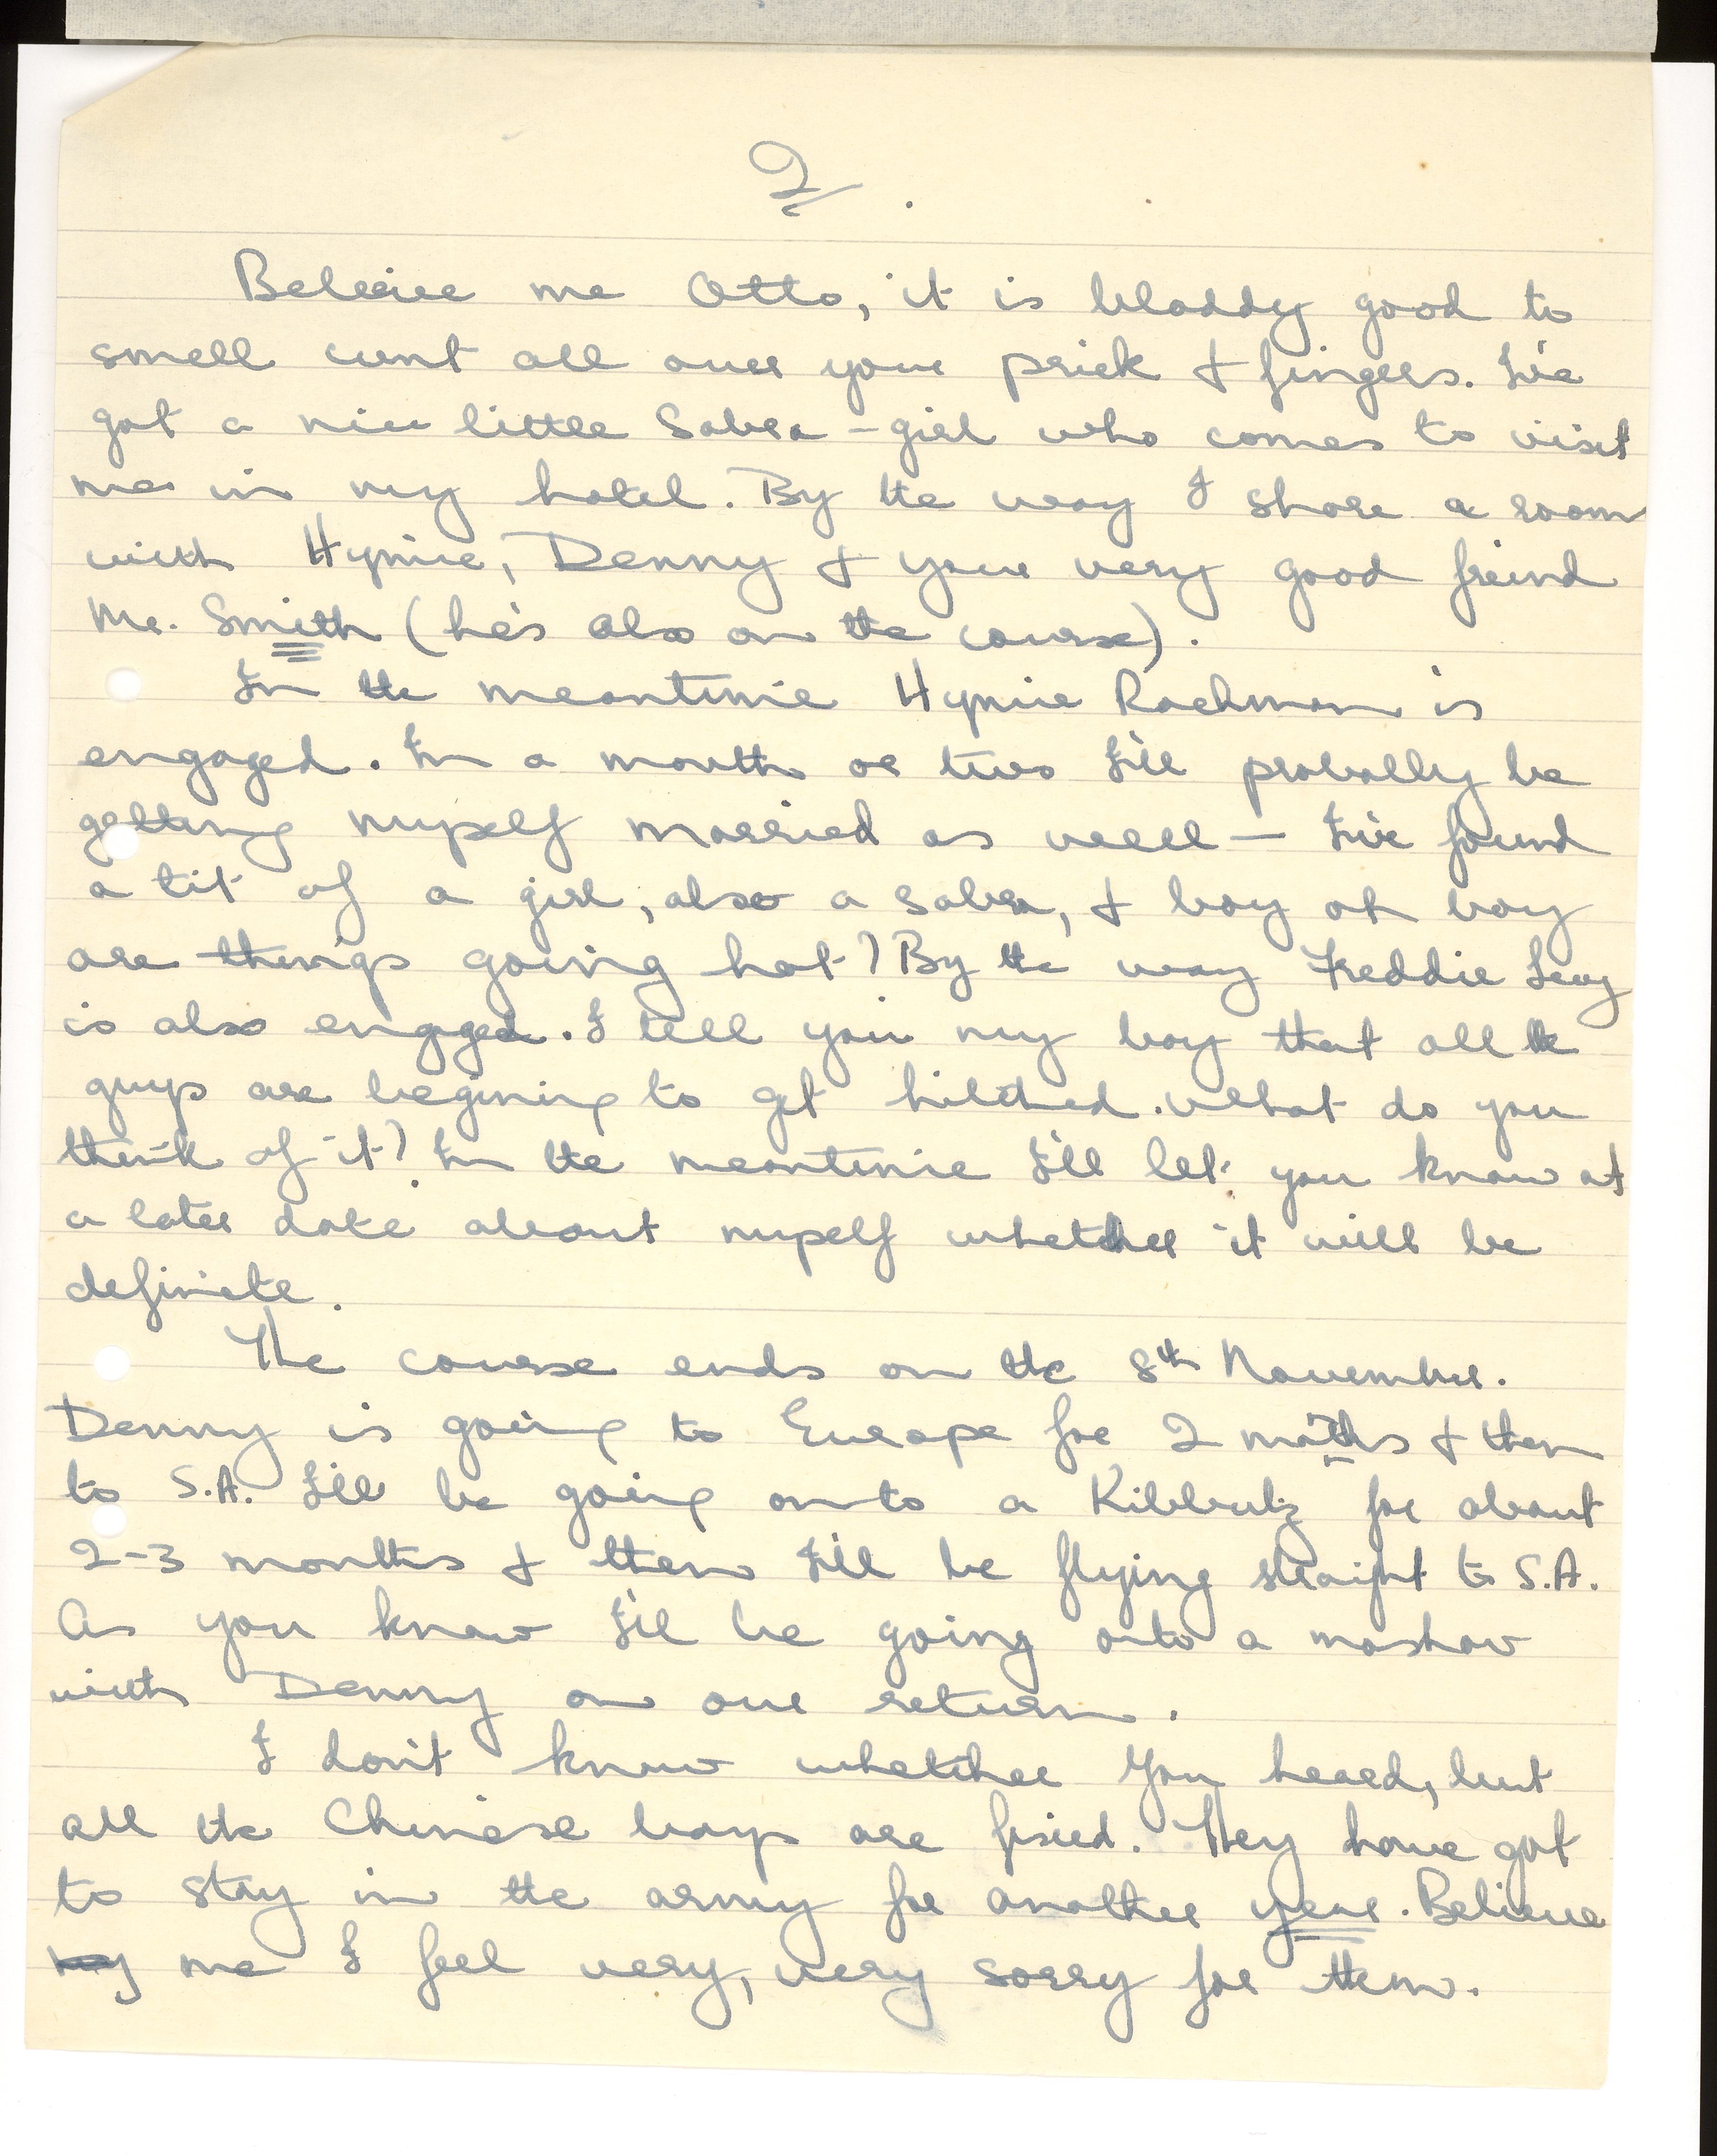 2.
Beleive me Otto, it is bloddy good to
smell cunt all over your prick & fingers. I've
got a nice little Sabra-girl who comes to visit
me in my hotel. By the way I share a room
with Hymie, Denny & your very good freind
Mr. Smith (he's also on the course).
In the meantime Hymie Rachman is
engaged. In a month or two I'll probably be
getting myself married as well — I've found
a tit of a girl, also a sabra, & boy oh boy
are things going hot? By the way Freddie Levy
is also engaged. I tell you my boy that all the
guys are begining to get hitched. What do you
think of it? In the meantime I'll let you know at
a later date about myself whether it will be
definite.
The course ends on the 8th November.
Denny is going to Europe for 2 months & then
to S.A. I'll be going onto a Kibbutz for about
2-3 months & then I'll be flying straight to S.A.
As you know I'll be going onto a moshav
with Denny on our return.
I don't know whether you heard, but
all the Chinese boys are fixed. They have got
to stay in the army for another year. Believe
me I feel very, very sorry for them.